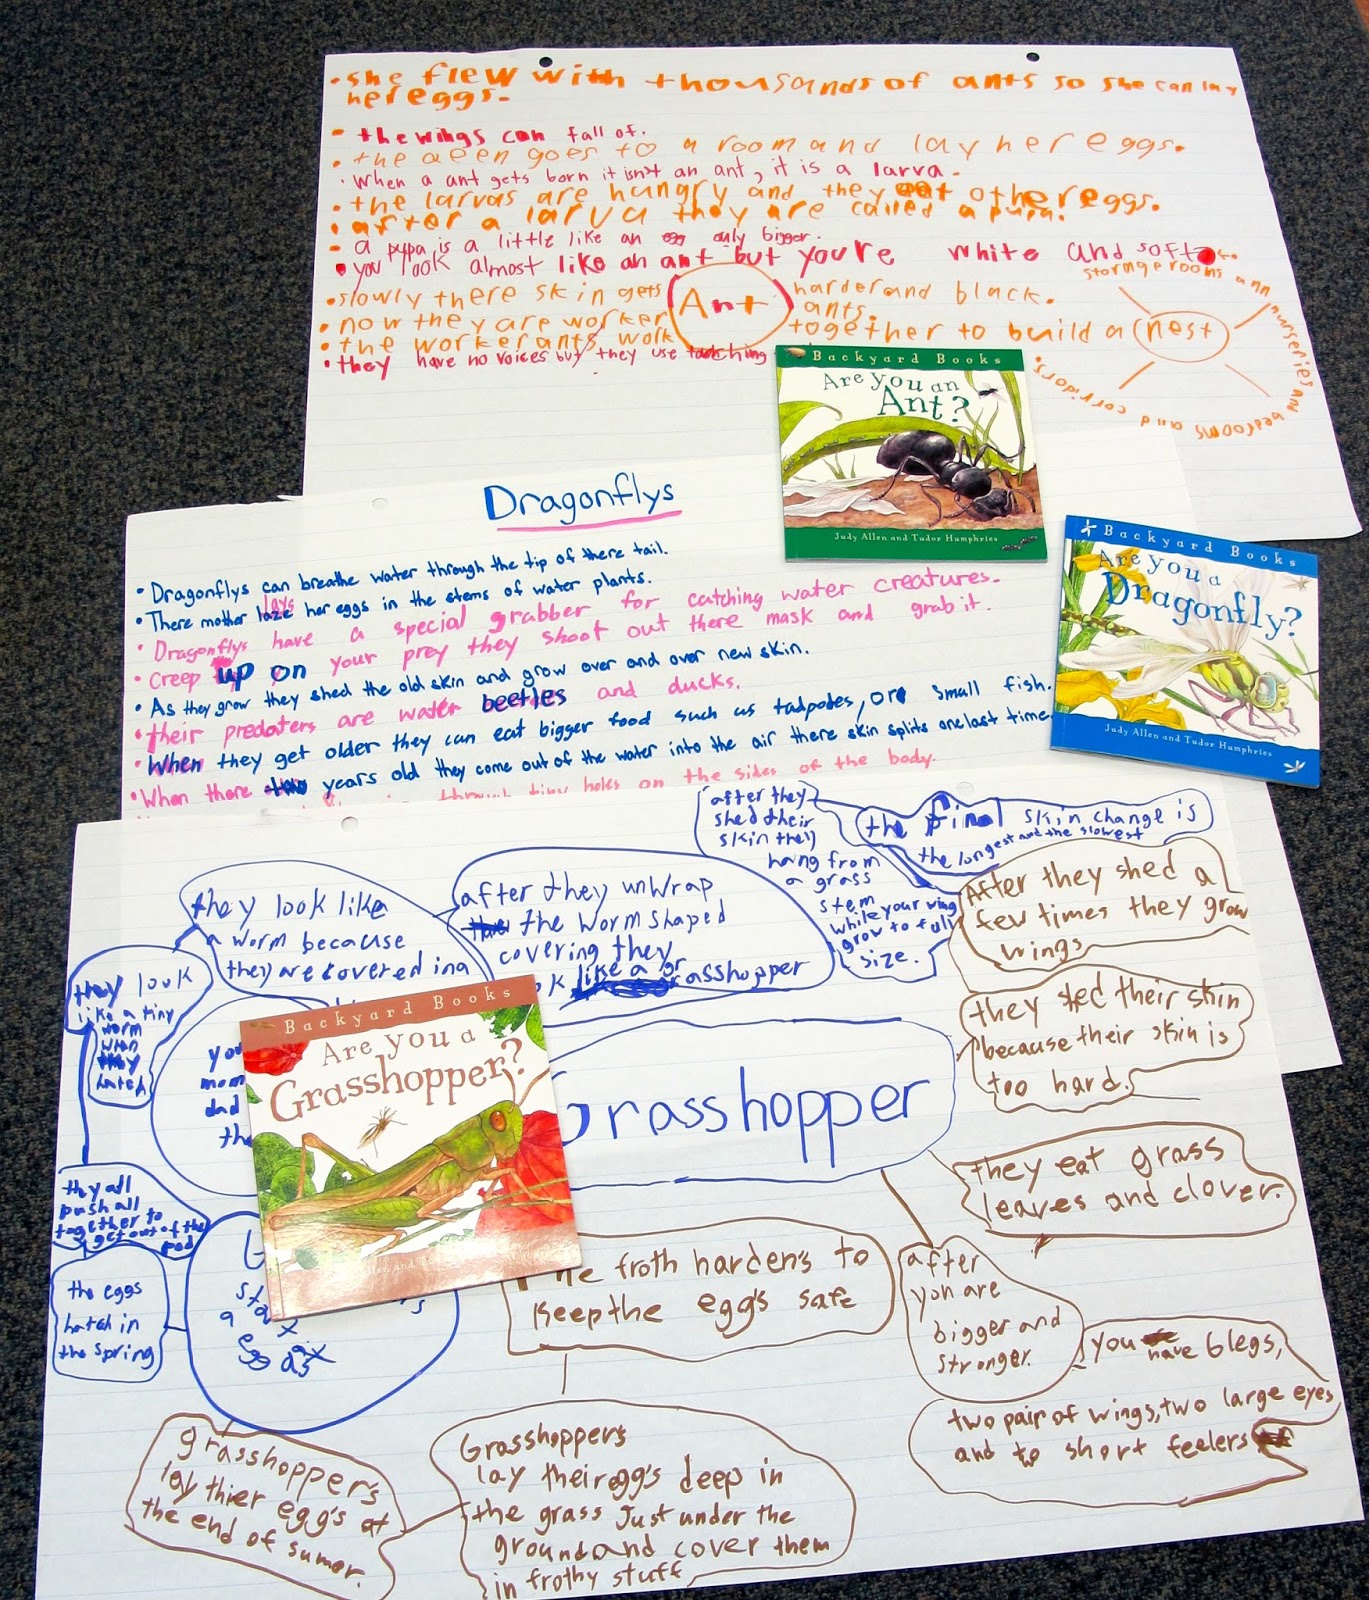 •she flew with thousands of ants so she can lay
her eggs.
• the wings can fall of.
• the qeen goes to a room and lay her eggs.
• When a ant gets born it isn't an ant, it is a larva.
• the larvas are hungry and they eat other eggs.
• after a larva they are called a pupa.
- a pupa is a little like an egg only bigger.
• you look almost like an ant but you're white and soft
•slowly there skin gets harder and black.
• now they are worker ants.
• the worker ants work together to build a nest
• they have no voices but they use touching
Ant
storage rooms and nurseries and bedrooms and corridors.
Backyard Books
Are you an
Ant?
Judy Allen and Tudor Humphries
Dragonflys
• Dragonflys can breathe water through the tip of there tail.
• There mother laze lays her eggs in the stems of water plants.
• Dragonflys have a special grabber for catching water creatures.
• Creep up on your prey they shoot out there mask and grab it.
• As they grow they shed the old skin and grow over and over new skin.
• their predaters are water beetles and ducks.
• When they get older they can eat bigger food such as tadpoles, or small fish.
• When there two years old they come out of the water into the air there skin splits one last time.
through tiny holes on the sides of the body.
Backyard Books
Are you a
Dragonfly?
Judy Allen and Tudor Humphries
after they
shed their
skin they
hang from
a grass
stem
while your wing
grow to full
size.
the final skin change is
the longest and the slowest
After they shed a
few times they grow
wings
they shed their skin
because their skin is
too hard.
they look like
a worm because
they are covered in a
after they unwrap
the worm shaped
covering they
look like a grasshopper
they look
like a tiny
worm
when
they
hatch
you
mom
dad
the
Backyard Books
Are you a
Grasshopper?
Judy Allen and Tudor Humphries
Grasshopper
they eat grass
leaves and clover.
they all
push all
together to
get out of the
pod
the eggs
hatch in
the spring
start
a
egg as
The froth harden's to
Keep the egg's safe
after
you are
bigger and
stronger.
you have 6 legs,
two pair of wings, two large eyes
and to short feelers
grasshopper's
lay thier egg's at
the end of sumer.
Grasshopper's
lay their egg's deep in
the grass Just under the
ground and cover them
in frothy stuff